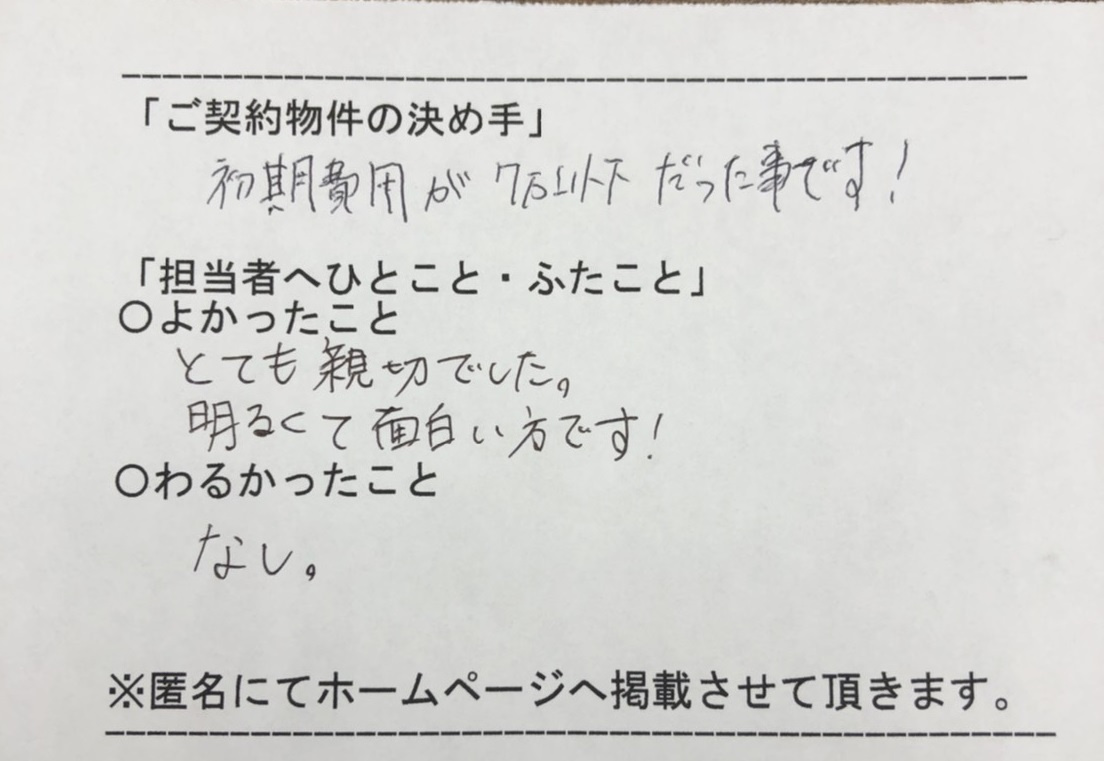 「ご契約物件の決め手」
初期費用が7万以下だった事です!
「担当者へひとこと・ふたこと」
○よかったこと
とても親切でした。
明るくて面白い方です!
○わるかったこと
なし。
※匿名にてホームページへ掲載させて頂きます。